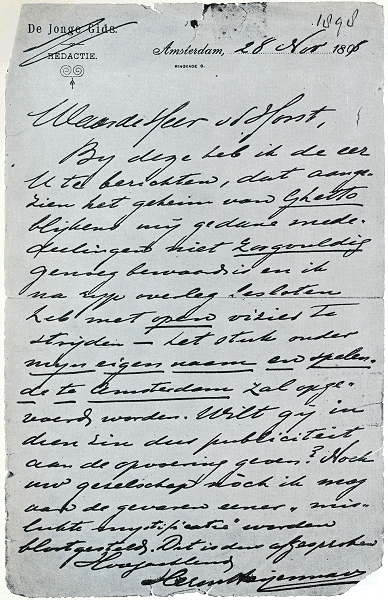 1898
De Jonge Gids.
REDACTIE.
Amsterdam, 28 Nov 1898
RINGKADE 6.
Waarde Heer v/d Horst,
By deze heb ik de eer
U te berichten, dat aange-
zien het geheim van Ghetto
blijkens mij gedane mede-
deelingen niet zorgvuldig
genoeg bewaard is en ik
na rijp overleg besloten
heb met open vizier te
strijden — het stuk onder
mijn eigen naam en spelen-
de te Amsterdam zal opge-
voerd worden. Wilt gij in
dien zin dus publiciteit
aan de opvoering geven? Noch
uw gezelschap noch ik mag
aan de gevaren eener „mis-
lukte mystificatie" worden
blootgesteld. Dit is dus afgesproken
Hoogachtend
Herm Heyermans